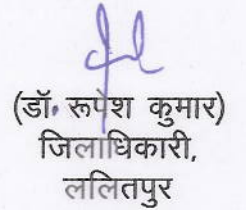 (डॉ. रूपेश कुमार)
जिलाधिकारी,
ललितपुर